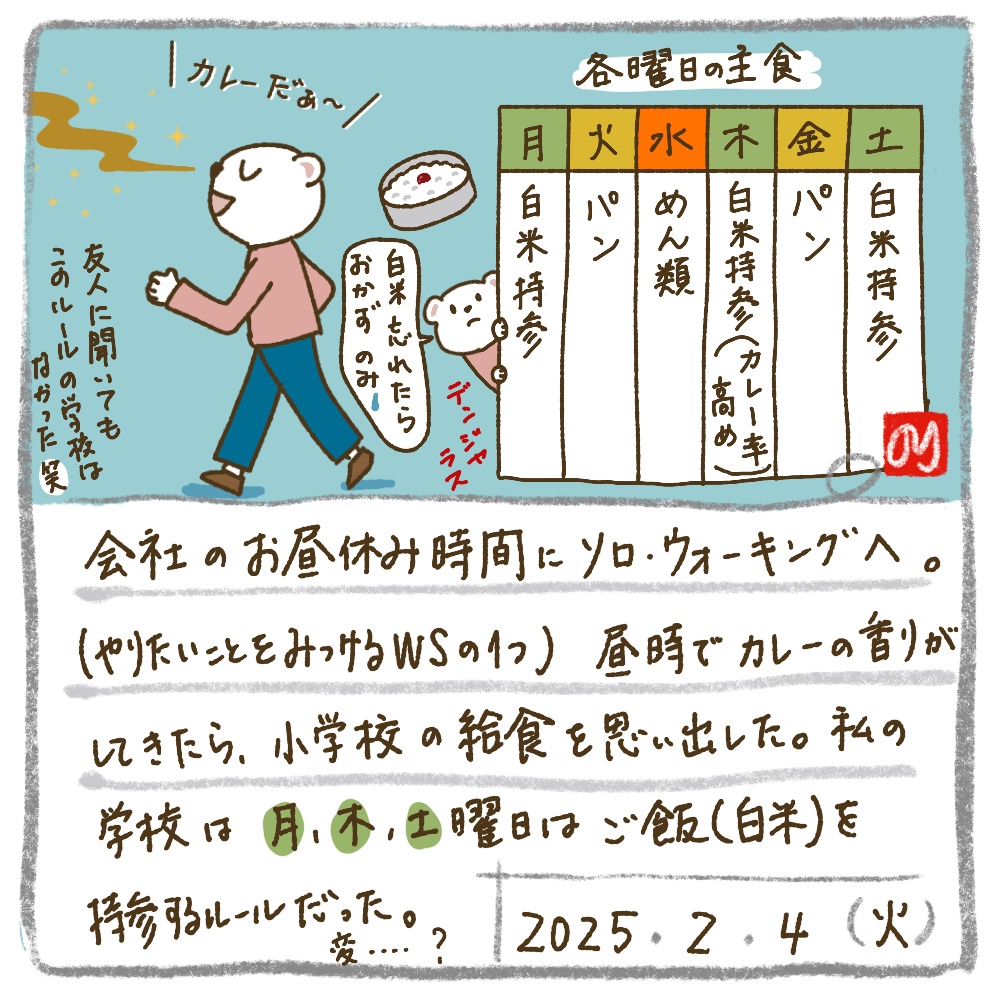 カレーだぁ～
各曜日の主食
月 火 水 木 金 土
白米持参
パン
めん類
白米持参(カレー率高め)
パン
白米持参
白米忘れたら
おかずのみ
デンジャ
ラス
友人に聞いても
このルールの学校は
なかった 笑
のり
会社のお昼休み時間にソロ・ウォーキングへ。
(やりたいことをみつけるWSの1つ) 昼時でカレーの香りが
してきたら、小学校の給食を思い出した。私の
学校は 月、木、土曜日はご飯(白米)を
持参するルールだった。
変....?
2025.2.4(火)